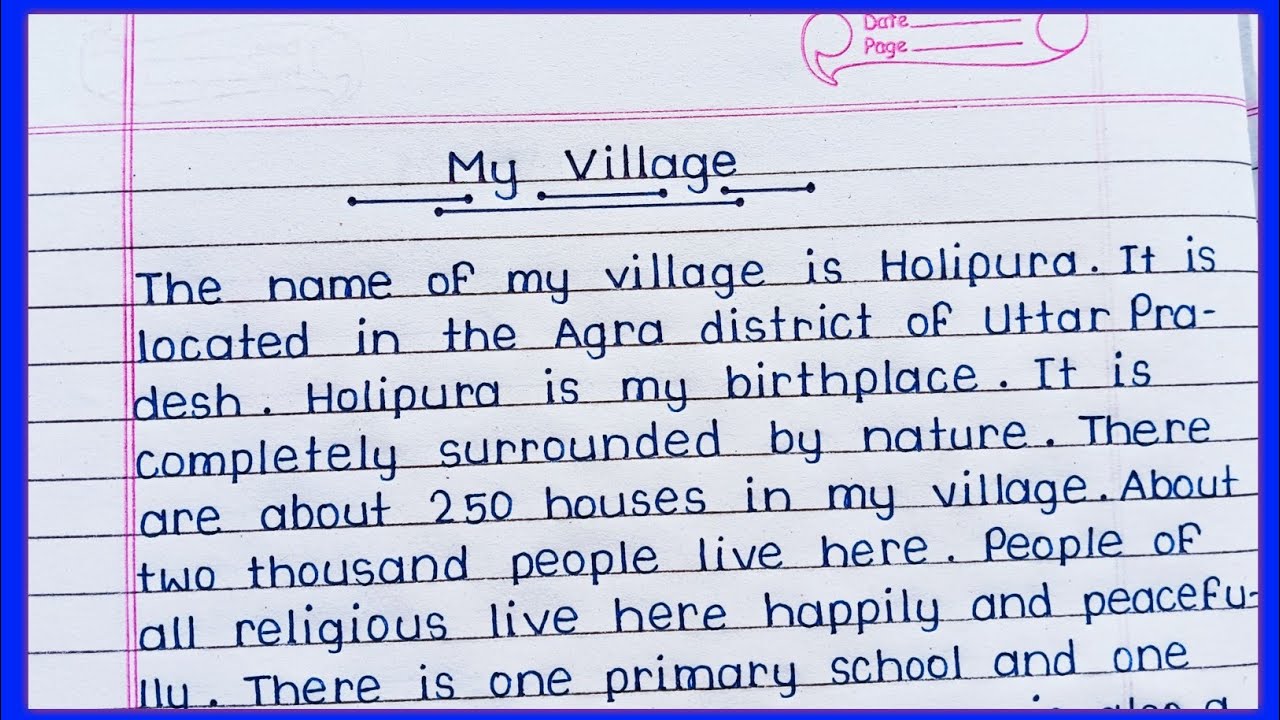 Date
Page
My Village
The name of my village is Holipura. It is
located in the Agra district of Uttar Pra-
desh. Holipura is my birthplace. It is
completely surrounded by nature. There
are about 250 houses in my village. About
two thousand people live here. People of
all religious live here happily and peacefu-
lly. There is one primary school and one
is also a